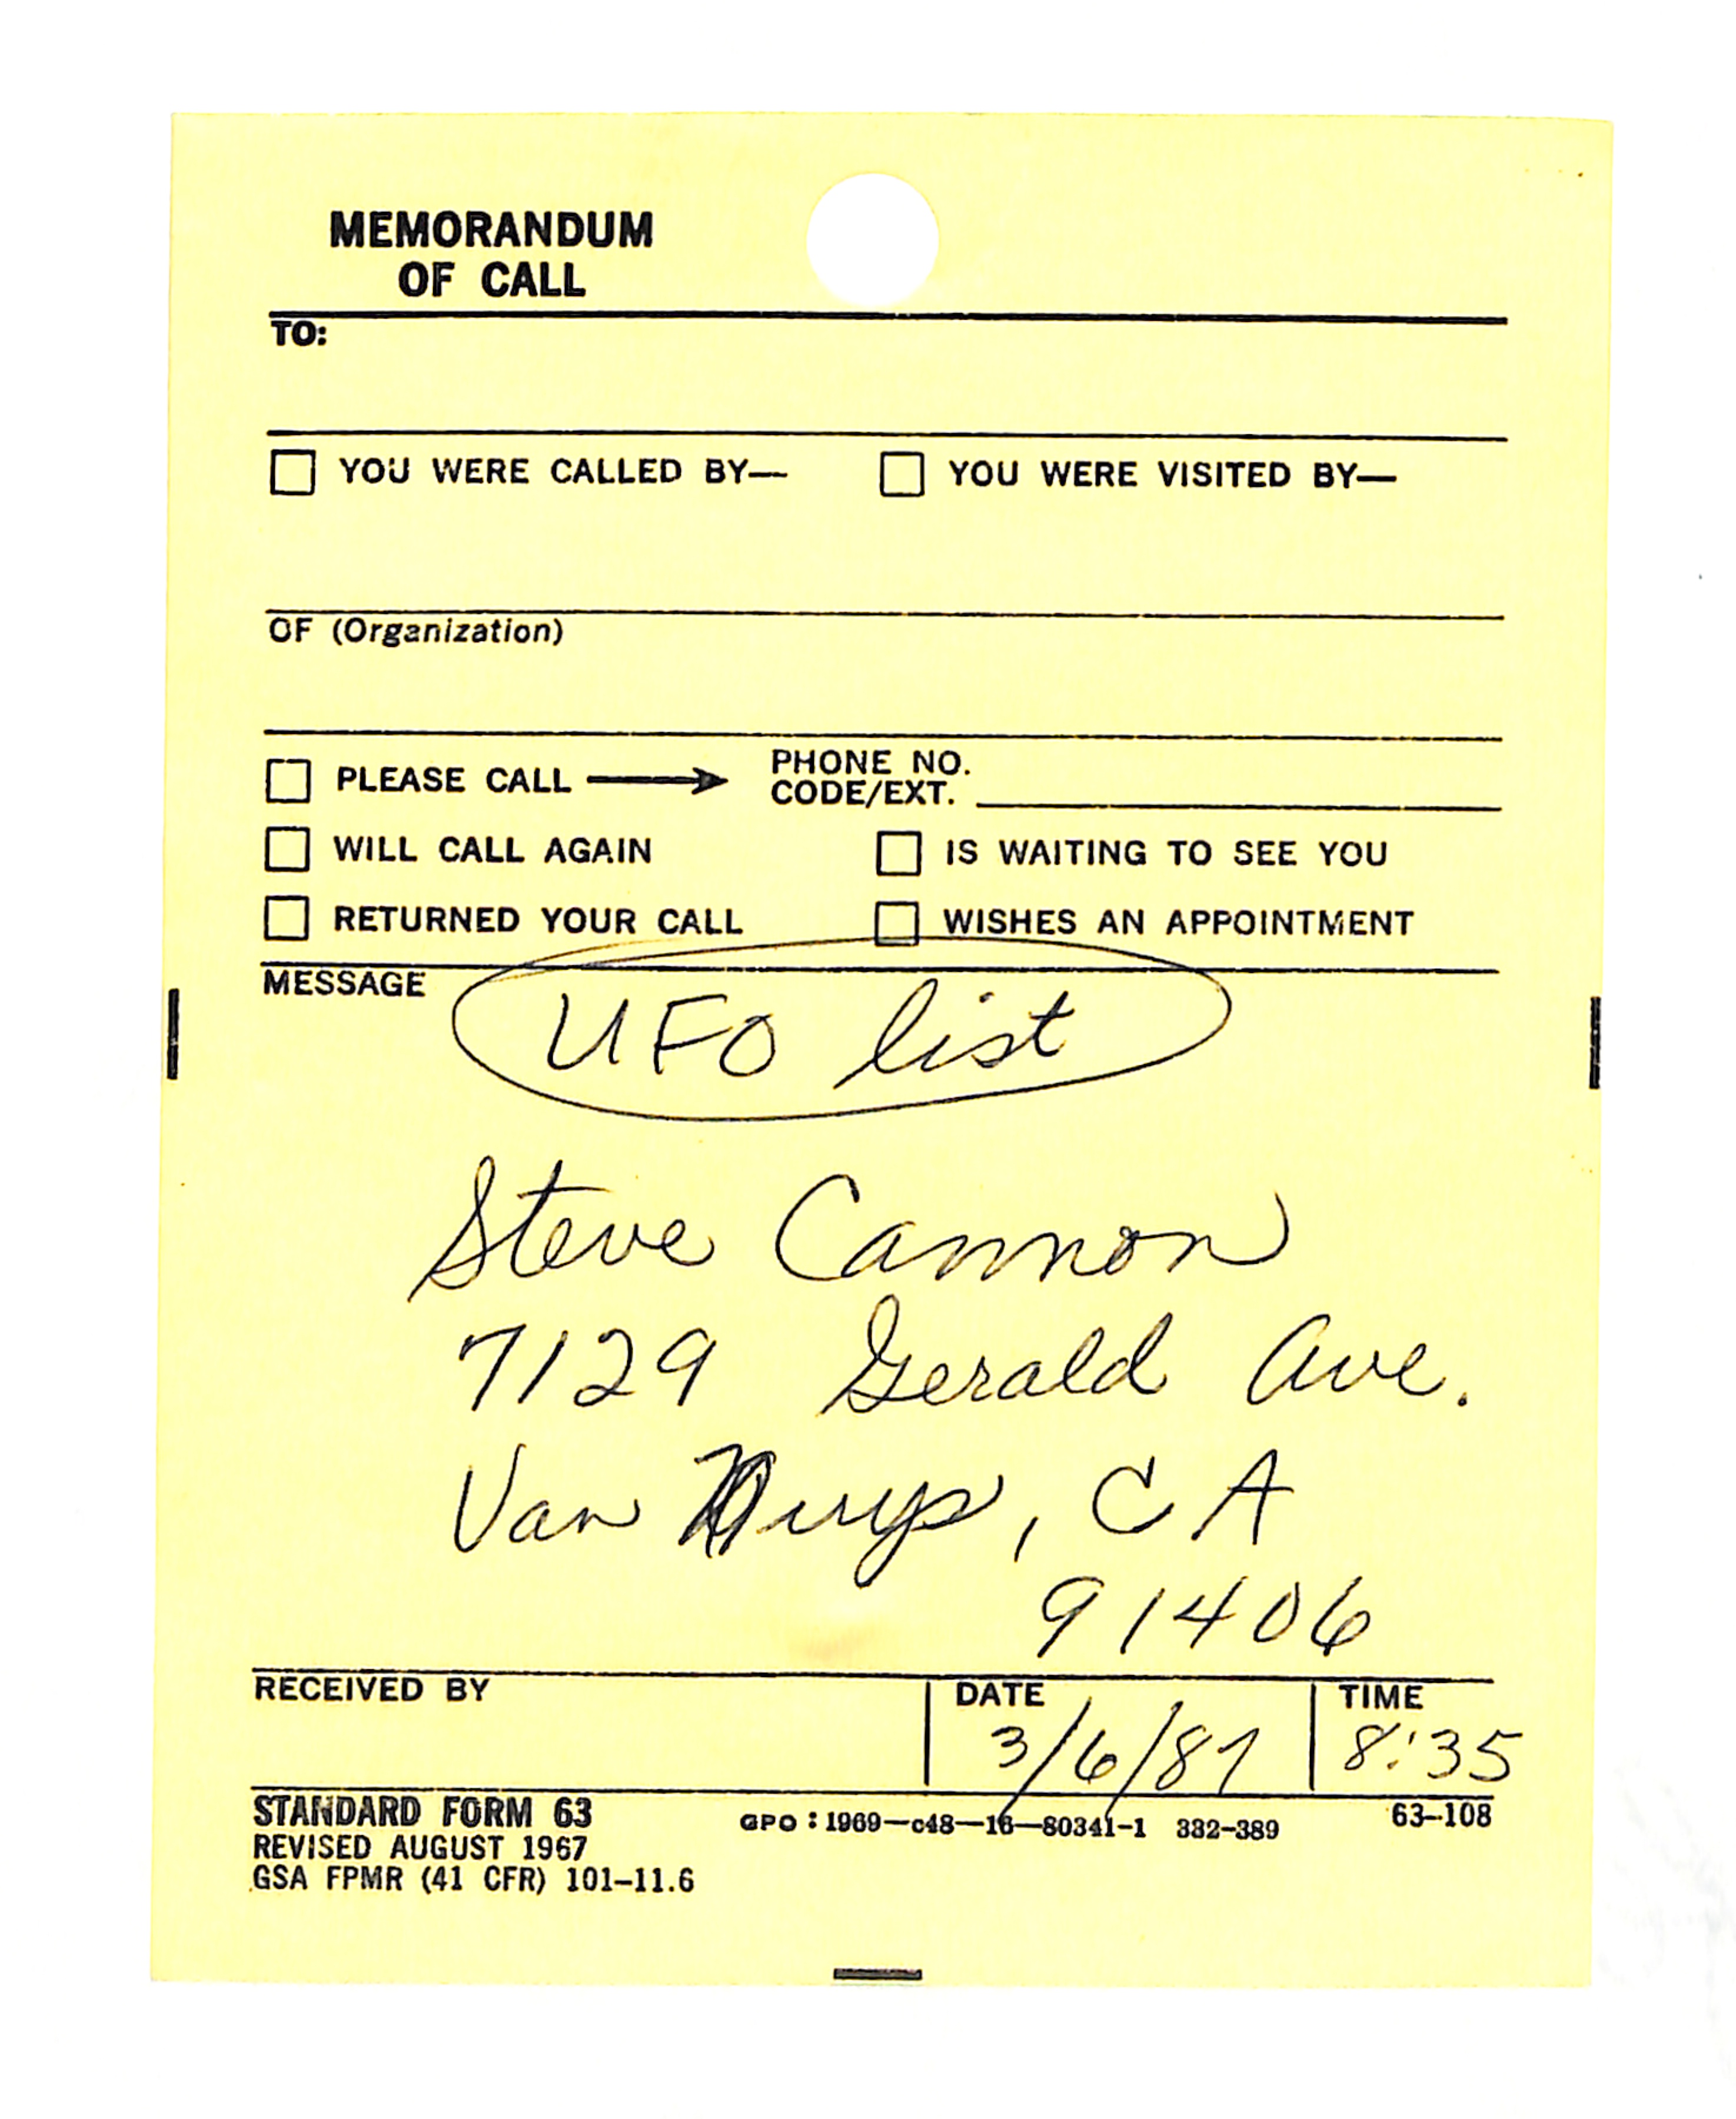 MEMORANDUM
OF CALL
TO:
YOU WERE CALLED BY— YOU WERE VISITED BY—
OF (Organization)
PLEASE CALL → PHONE NO.
CODE/EXT.
WILL CALL AGAIN IS WAITING TO SEE YOU
RETURNED YOUR CALL WISHES AN APPOINTMENT
MESSAGE UFO list
Steve Cannon
7129 Gerald Ave.
Van Nuys, CA
91406
RECEIVED BY DATE TIME
3/6/87 8:35
STANDARD FORM 63 GPO : 1969—c48—16—80341-1 332-389 63-108
REVISED AUGUST 1967
GSA FPMR (41 CFR) 101-11.6